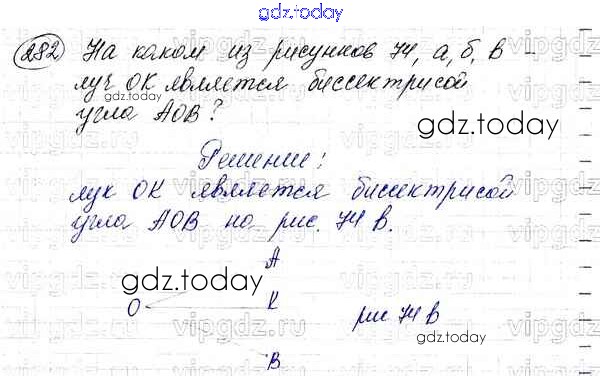 gdz.today
282 На каком из рисунков 74, а, б, в -
луч ОК является биссектрисой
gdz.today
угла АОВ?
gdz.today
Решение:
лук ОК является биссектрисой
угла АОВ на рис. 74 в.
vipgdz.ru
А
gdz.today
О К рис 74 в
vipgdz.ru
gdz.today
В